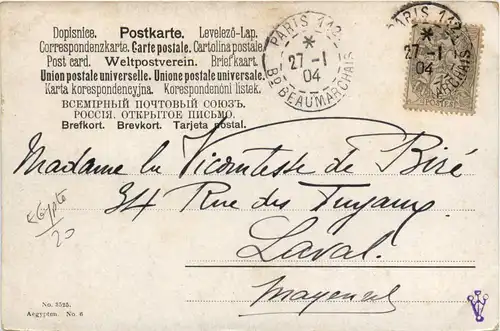 Dopisnice. Postkarte. Levelező-Lap.
Correspondenzkarte. Carte postale. Cartolina postale.
Post card. Weltpostverein. Briefkaart.
Union postale universelle. Unione postale universale.
Karta korespondencyjna. Korespondenční lístek.
ВСЕМІРНЫЙ ПОЧТОВЫЙ СОЮЗЪ.
РОССІЯ. ОТКРЫТОЕ ПИСЬМО.
Brefkort. Brevkort. Tarjeta postal.
PARIS 112
27 -1
04
Bd BEAUMARCHAIS
PARIS 112
27 -1
04
MARCHAIS
Madame la Vicomtesse de Biré
34 Rue des Tuyaux
Laval.
Mayenne
Egypte
20
No. 3525.
Aegypten. No. 6